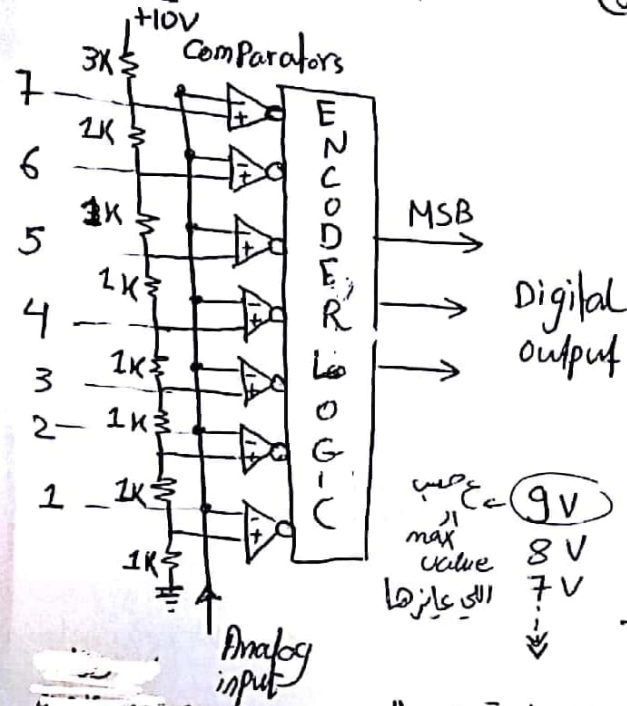 +10V
3K
Comparators
7
1K
6
1K
5
1K
4
1K
3
1K
2
1K
1
1K
ENCODER
LOGIC
MSB
Digital
output
9V
حسب
ال
max
value
8V
اللي عايزها
7V
Analog
input